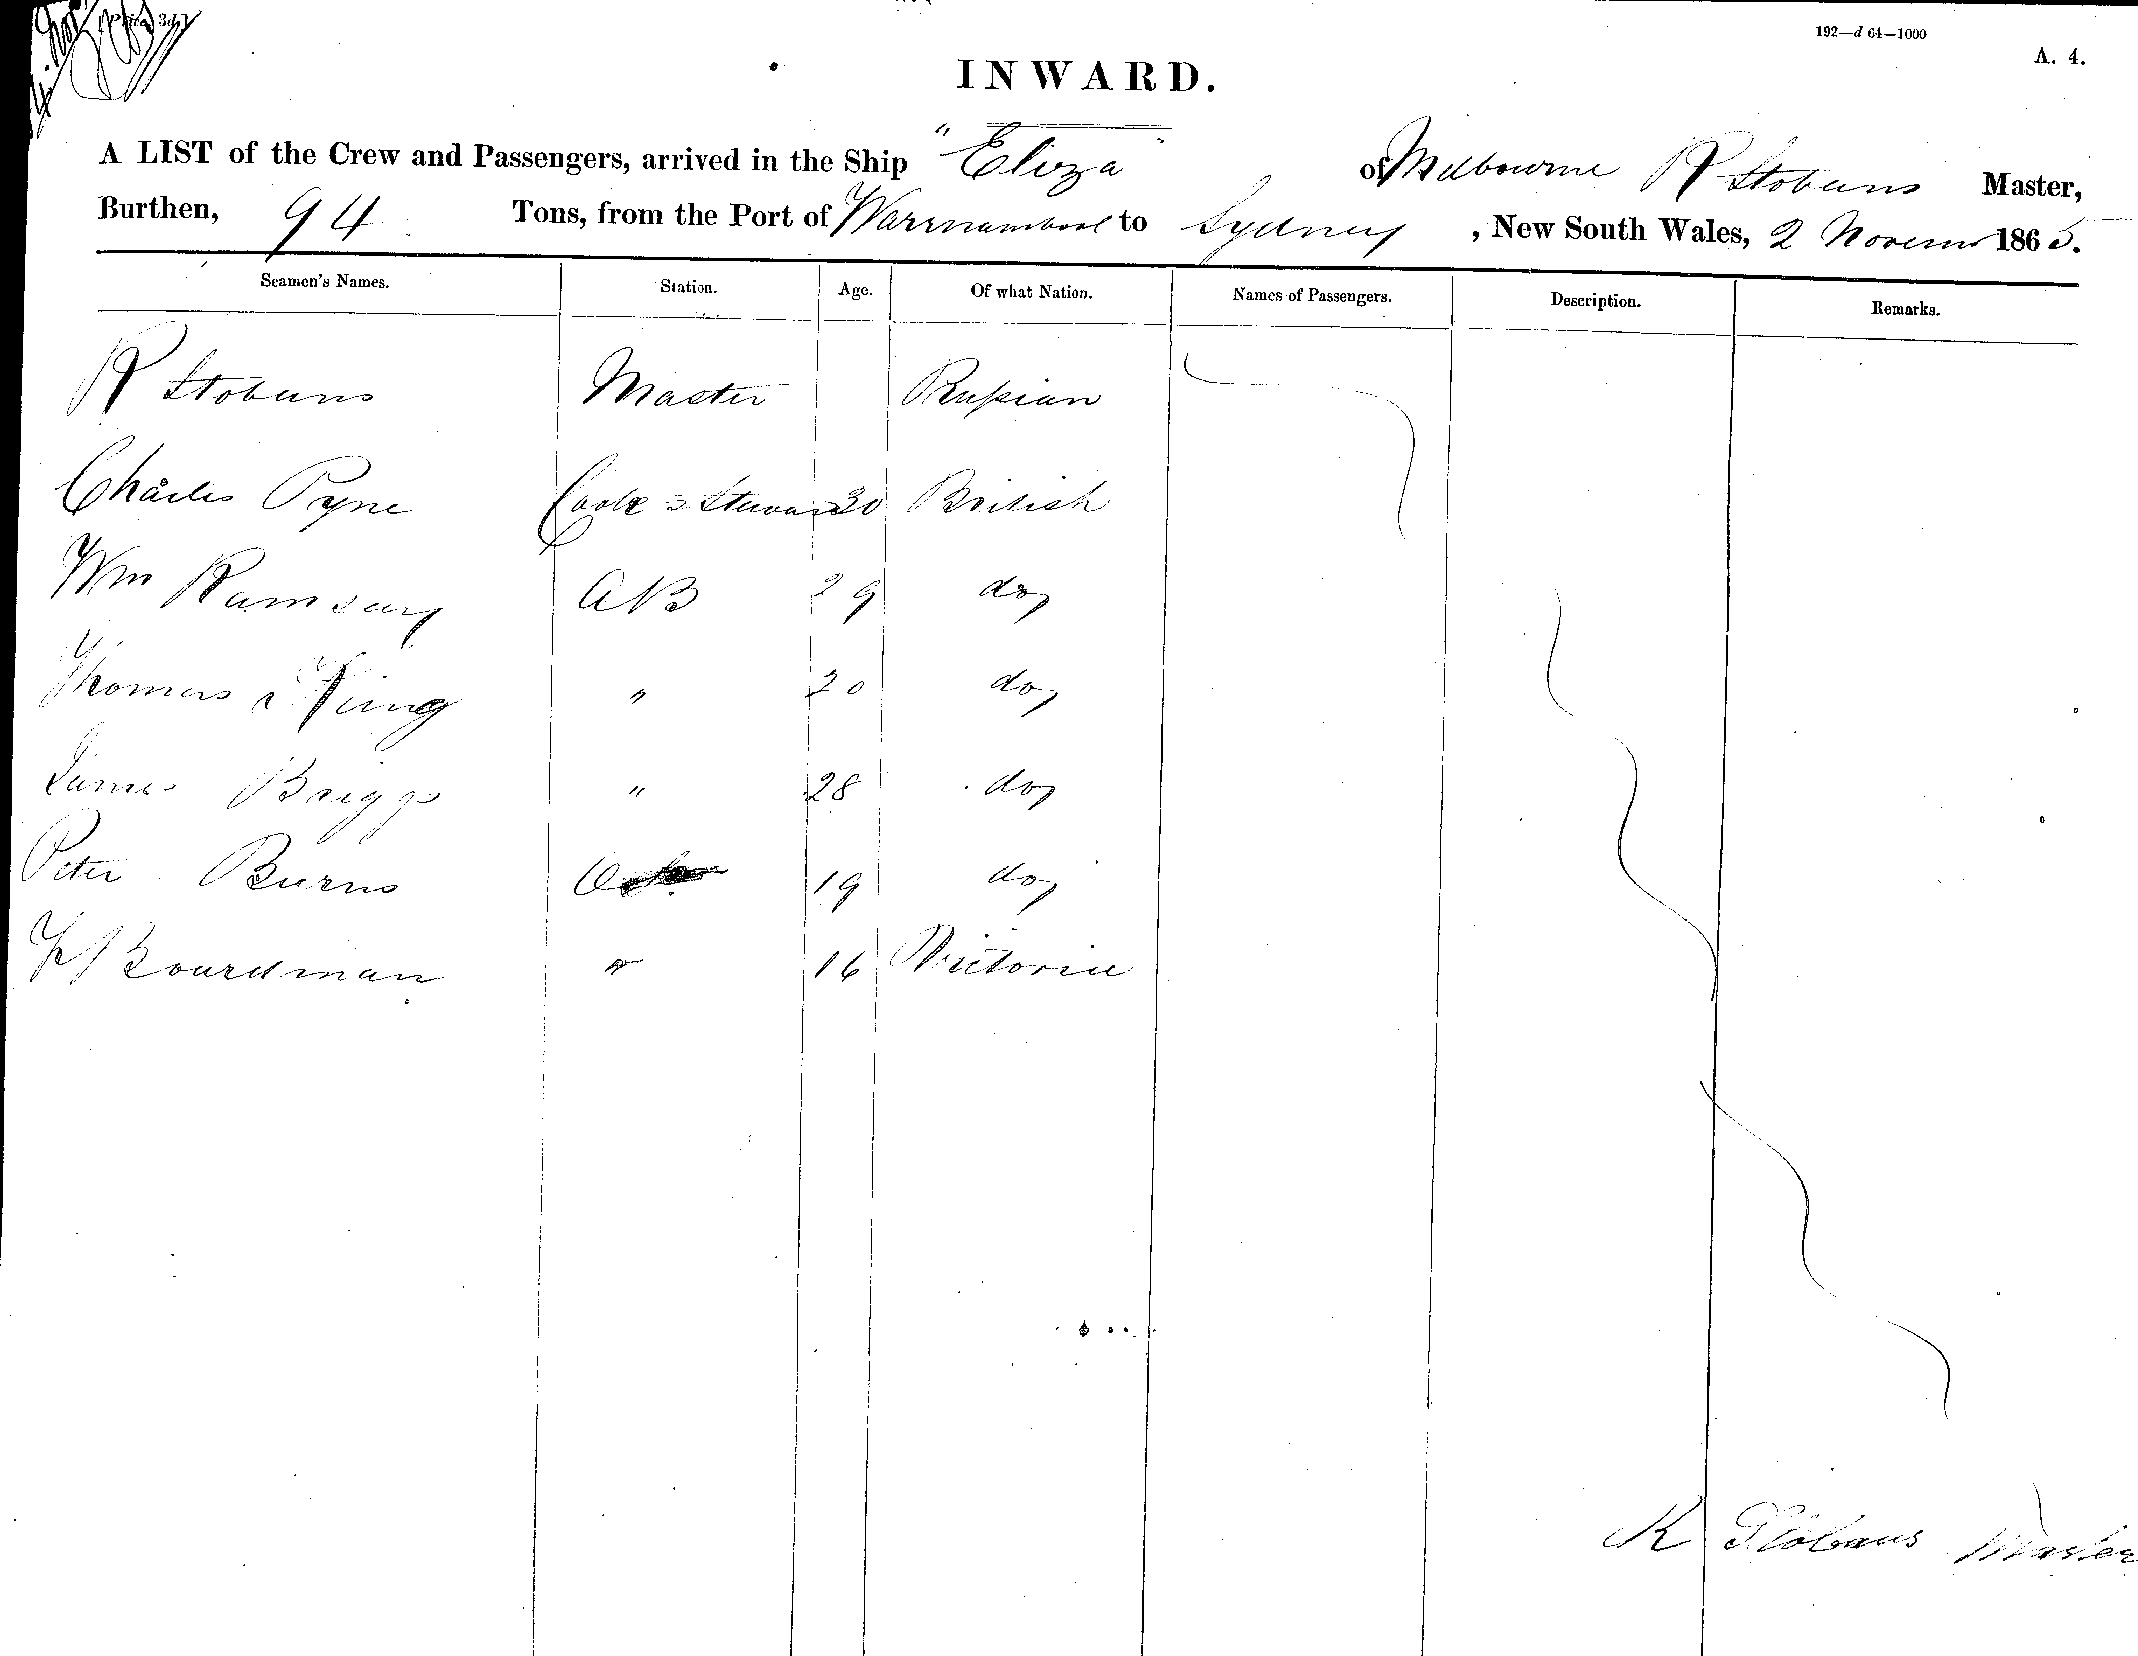 192—d 64—1000
A. 4.
INWARD.
A LIST of the Crew and Passengers, arrived in the Ship "Eliza" of Melbourne R Stobaus Master,
Burthen, 94 Tons, from the Port of Warrnambool to Sydney, New South Wales, 2 Novem 1865.
Seamen's Names. Station. Age. Of what Nation. Names of Passengers. Description. Remarks.
R Stobaus Master Russian
Charles Pyne Cook & Steward 30 British
Wm Ramsay AB 29 do,
Thomas King " 20 do,
James Briggs " 28 do,
Peter Burns 19 do,
Boardman " 16 Victoria
R Stobaus Master